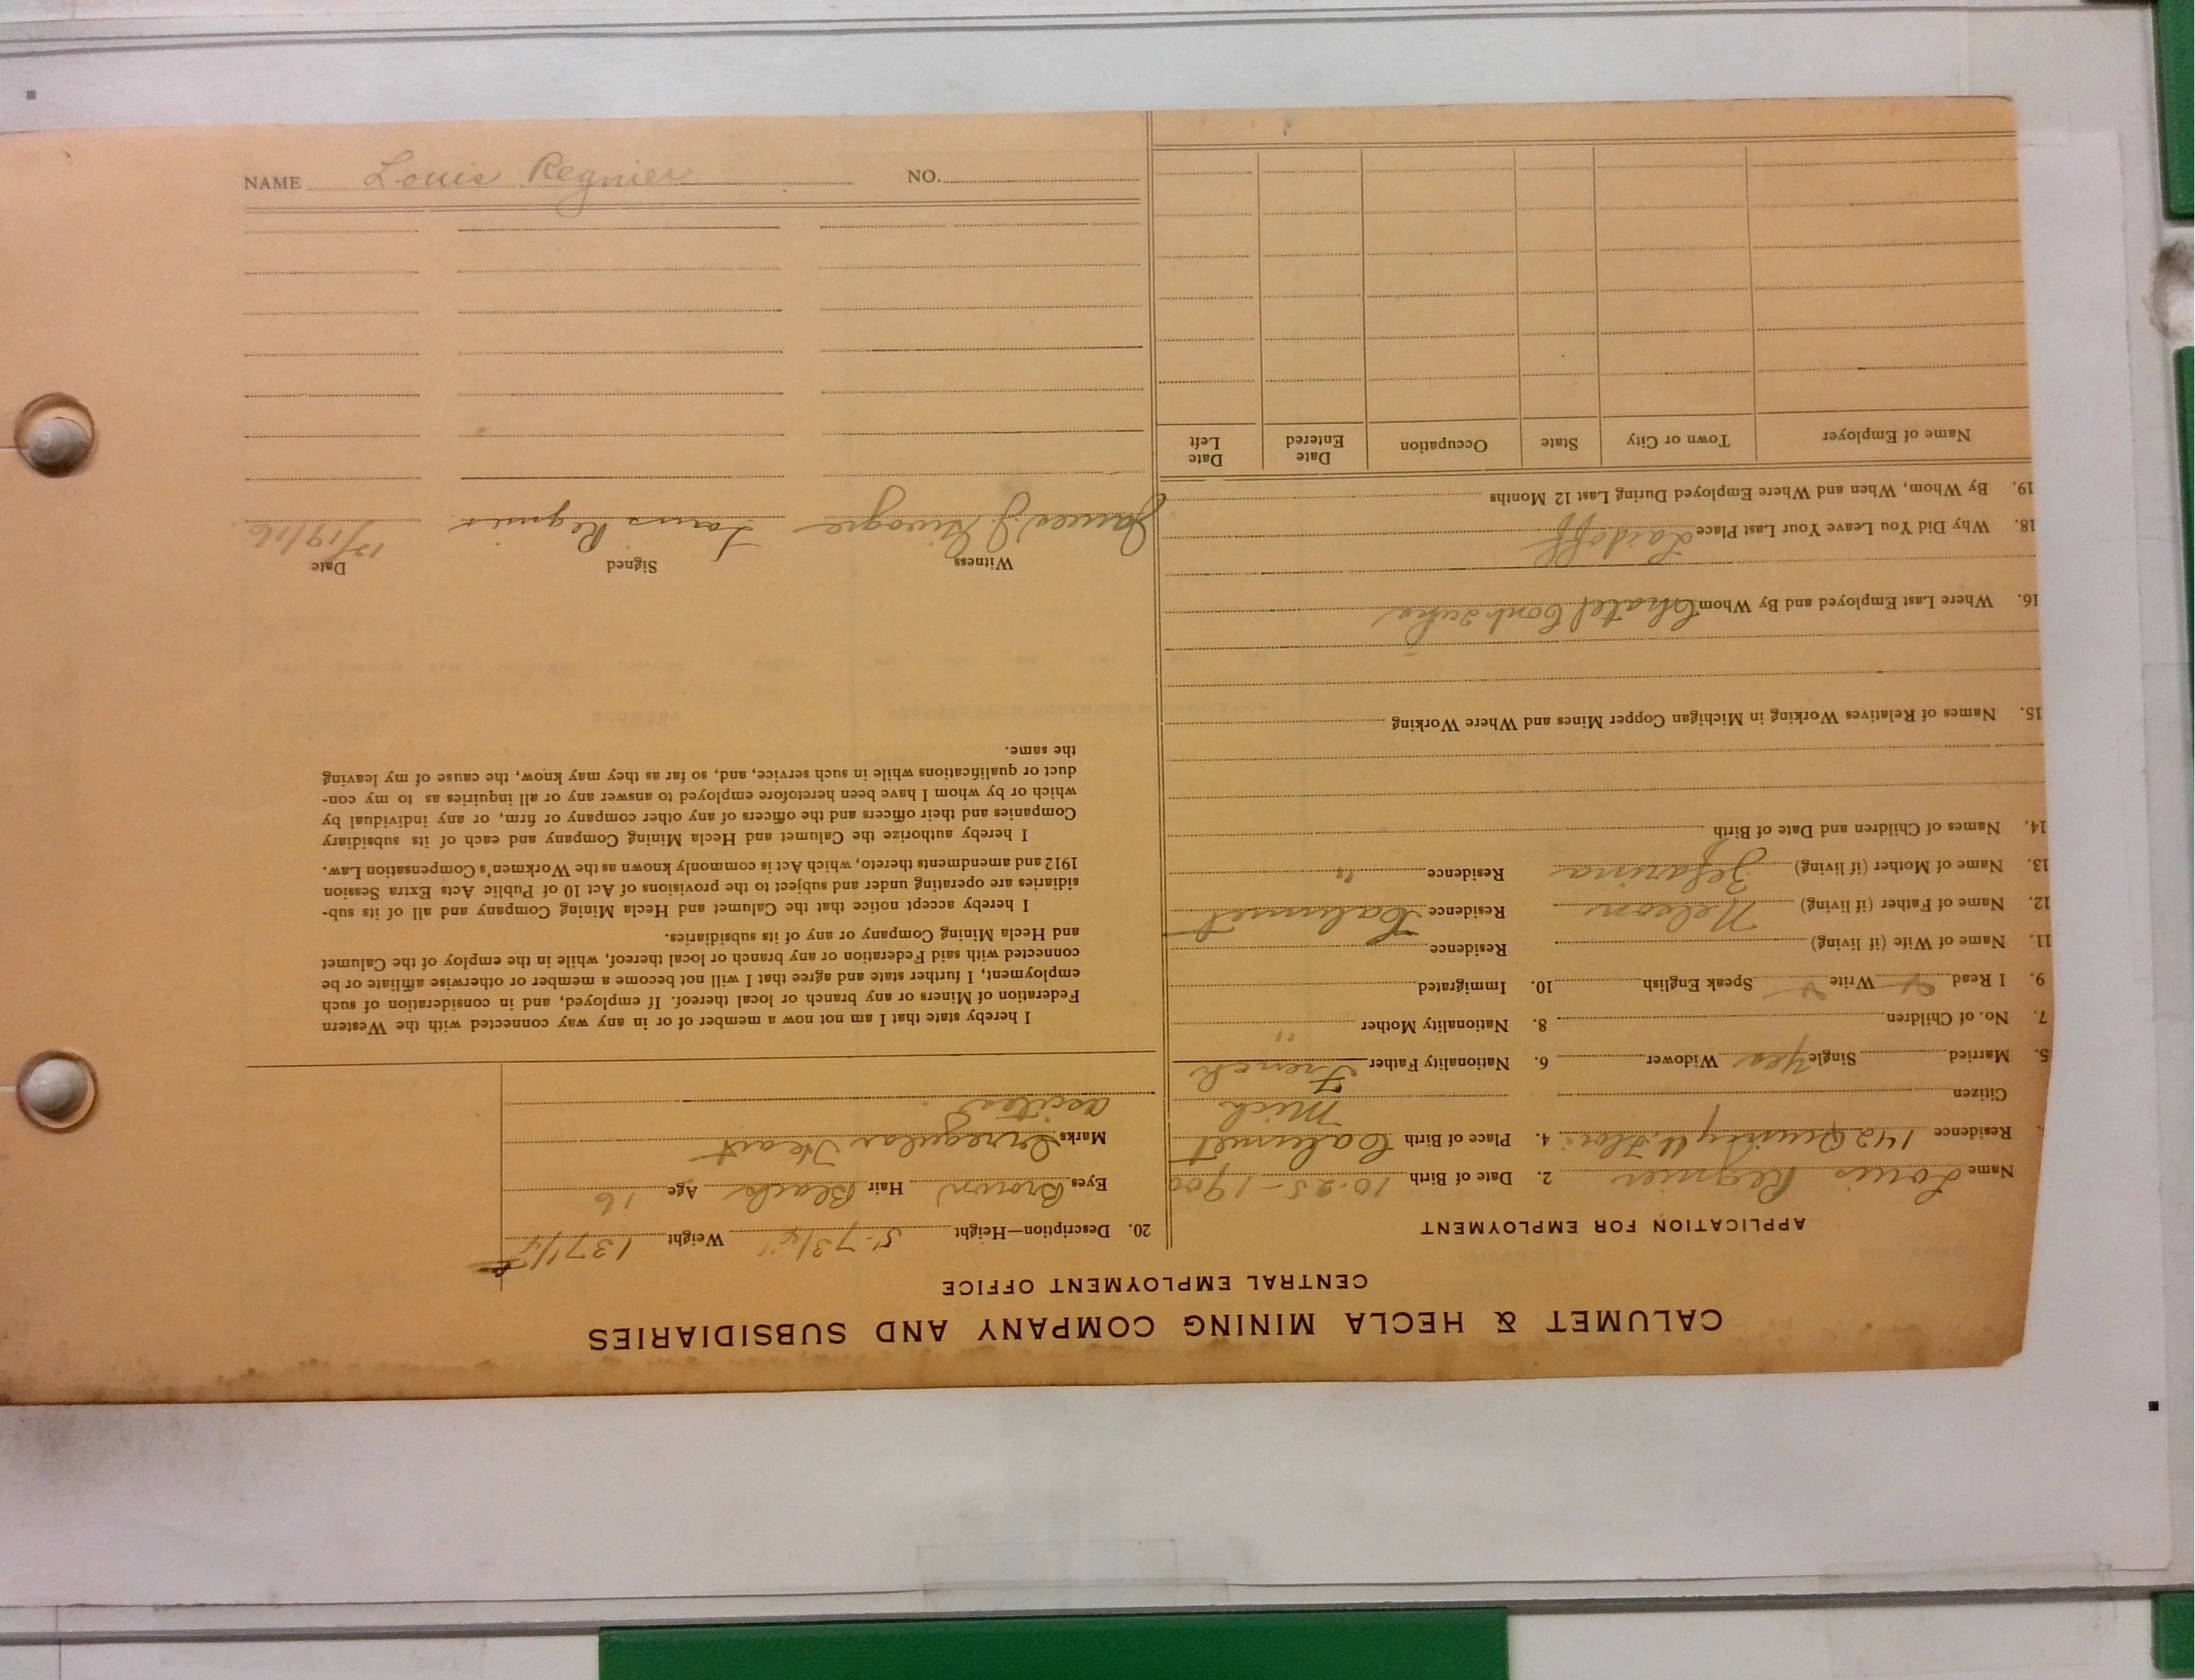 CALUMET & HECLA MINING COMPANY AND SUBSIDIARIES
CENTRAL EMPLOYMENT OFFICE
APPLICATION FOR EMPLOYMENT
Name Louis Regnier 2. Date of Birth 10-25-1900
Residence 142 4. Place of Birth Calumet
Citizen Mich
5. Married Single Yes Widower 6. Nationality Father French
7. No. of Children 8. Nationality Mother "
9. I Read Write Speak English 10. Immigrated
11. Name of Wife (if living) Residence
12. Name of Father (if living) Nelson Residence Calumet
13. Name of Mother (if living) Zefarina Residence "
14. Names of Children and Date of Birth
15. Names of Relatives Working in Michigan Copper Mines and Where Working
16. Where Last Employed and By Whom
18. Why Did You Leave Your Last Place Laid off
19. By Whom, When and Where Employed During Last 12 Months
Name of Employer Town or City State Occupation Date Entered Date Left
20. Description—Height 5'-7 3/4" Weight 137
Eyes Brown Hair Black Age 16
Marks Irregular Heart
I hereby state that I am not now a member of or in any way connected with the Western
Federation of Miners or any branch or local thereof. If employed, and in consideration of such
employment, I further state and agree that I will not become a member or otherwise affiliate or be
connected with said Federation or any branch or local thereof, while in the employ of the Calumet
and Hecla Mining Company or any of its subsidiaries.
I hereby accept notice that the Calumet and Hecla Mining Company and all of its sub-
sidiaries are operating under and subject to the provisions of Act 10 of Public Acts Extra Session
1912 and amendments thereto, which Act is commonly known as the Workmen's Compensation Law.
I hereby authorize the Calumet and Hecla Mining Company and each of its subsidiary
Companies and their officers and the officers of any other company or firm, or any individual by
which or by whom I have been heretofore employed to answer any or all inquiries as to my con-
duct or qualifications while in such service, and, so far as they may know, the cause of my leaving
the same.
Witness Signed Date
James J. Louis Regnier 12/19/16
NAME Louis Regnier NO.